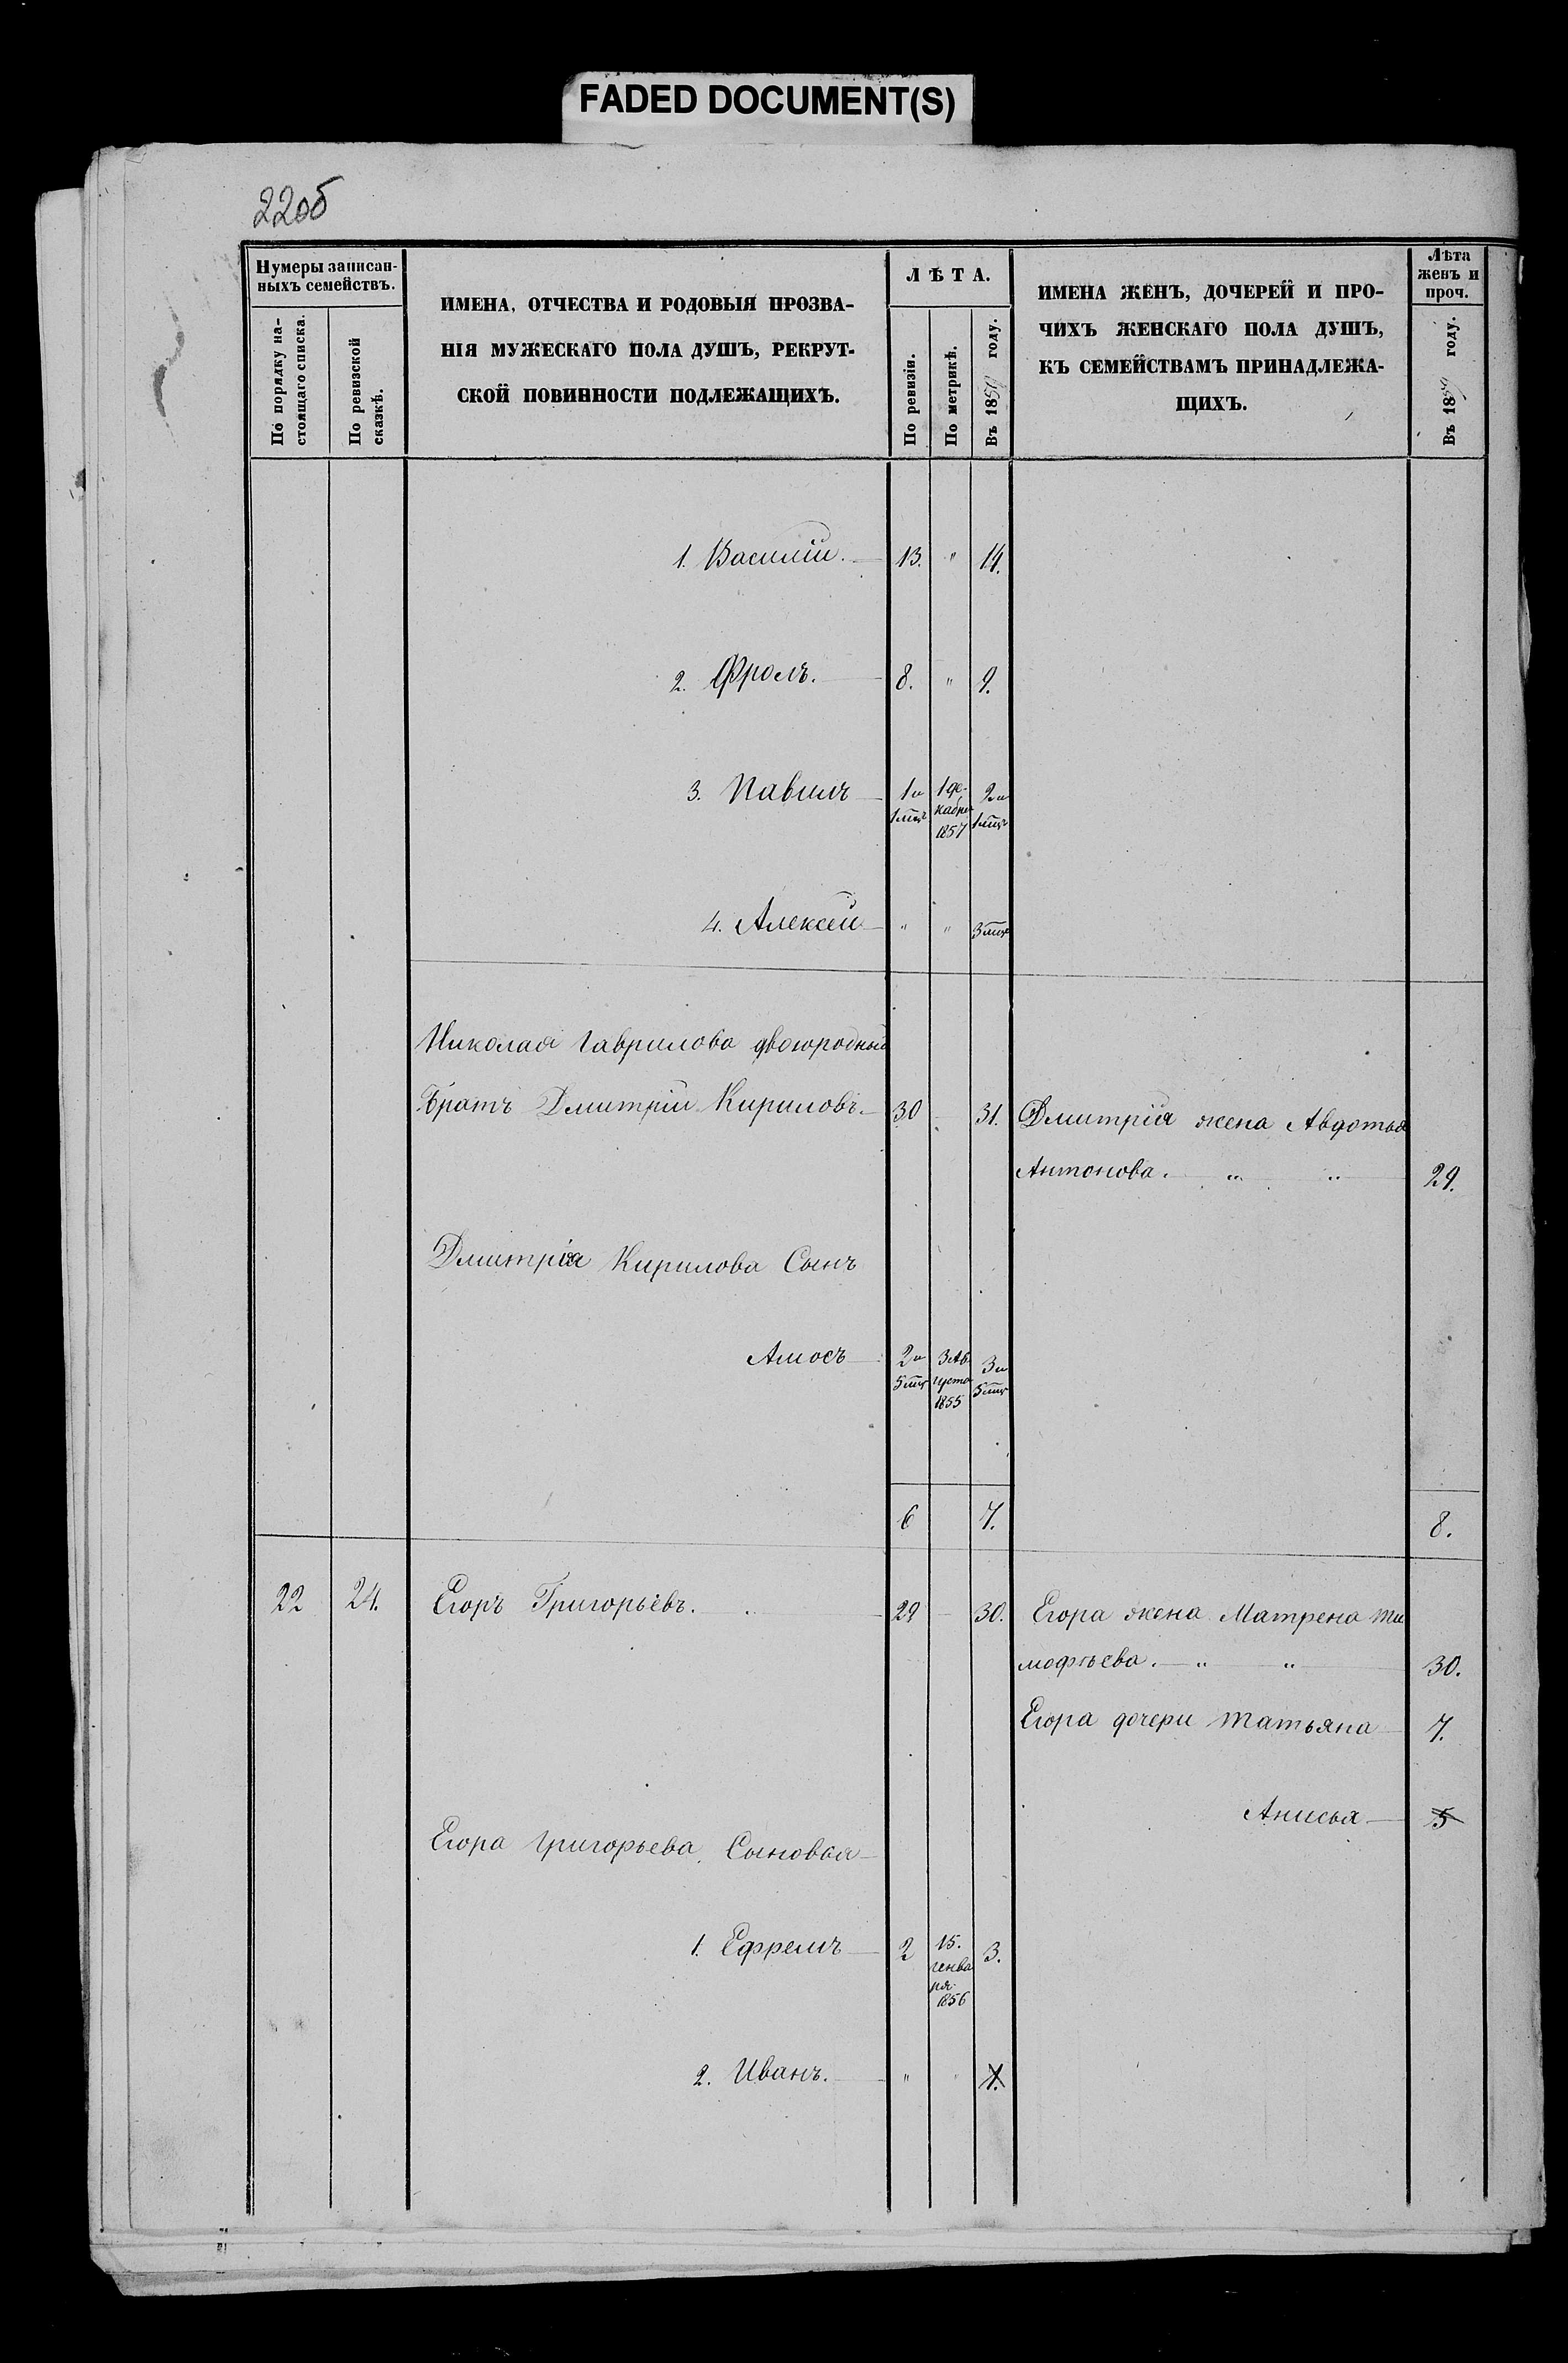 FADED DOCUMENT(S)
220б
Нумеры записан-
ныхъ семействъ.
По порядку на-
стоящаго списка.
По ревизской
сказкѣ.
ИМЕНА, ОТЧЕСТВА И РОДОВЫЯ ПРОЗВА-
НІЯ МУЖЕСКАГО ПОЛА ДУШЪ, РЕКРУТ-
СКОЙ ПОВИННОСТИ ПОДЛЕЖАЩИХЪ.
ЛѢТА.
По ревизіи.
По метрикѣ.
Въ 1859 году.
ИМЕНА ЖЕНЪ, ДОЧЕРЕЙ И ПРО-
ЧИХЪ ЖЕНСКАГО ПОЛА ДУШЪ,
КЪ СЕМЕЙСТВАМЪ ПРИНАДЛЕЖА-
ЩИХЪ.
Лѣта
женъ и
проч.
Въ 1859 году.
1. Василій. 13. " 14.
2. Фролъ. 8. " 9.
3. Павилъ 1 и 1 де- 2 и
1 мцъ кабря 1 мцъ
1857
4. Алексей " " 3 мцъ
Николая Гаврилова двоюродный
Братъ Дмитрій Кириловъ. 30 31. Дмитрія жена Авдотья
Антонова. " " 29.
Дмитрія Кирилова Сынъ
Амосъ 2 и 3 Ав- 3 и
5 мцъ густа 5 мцъ
1855
6 7. 8.
22 24. Егоръ Григорьевъ. 29 30. Егора жена Матрена Ти
мофѣева. " " 30.
Егора дочери Татьяна 7.
Анисья 5
Егора Григорьева Сыновья
1. Ефремъ 2 15. 3.
генва
ря
1856
2. Иванъ. " " 1.